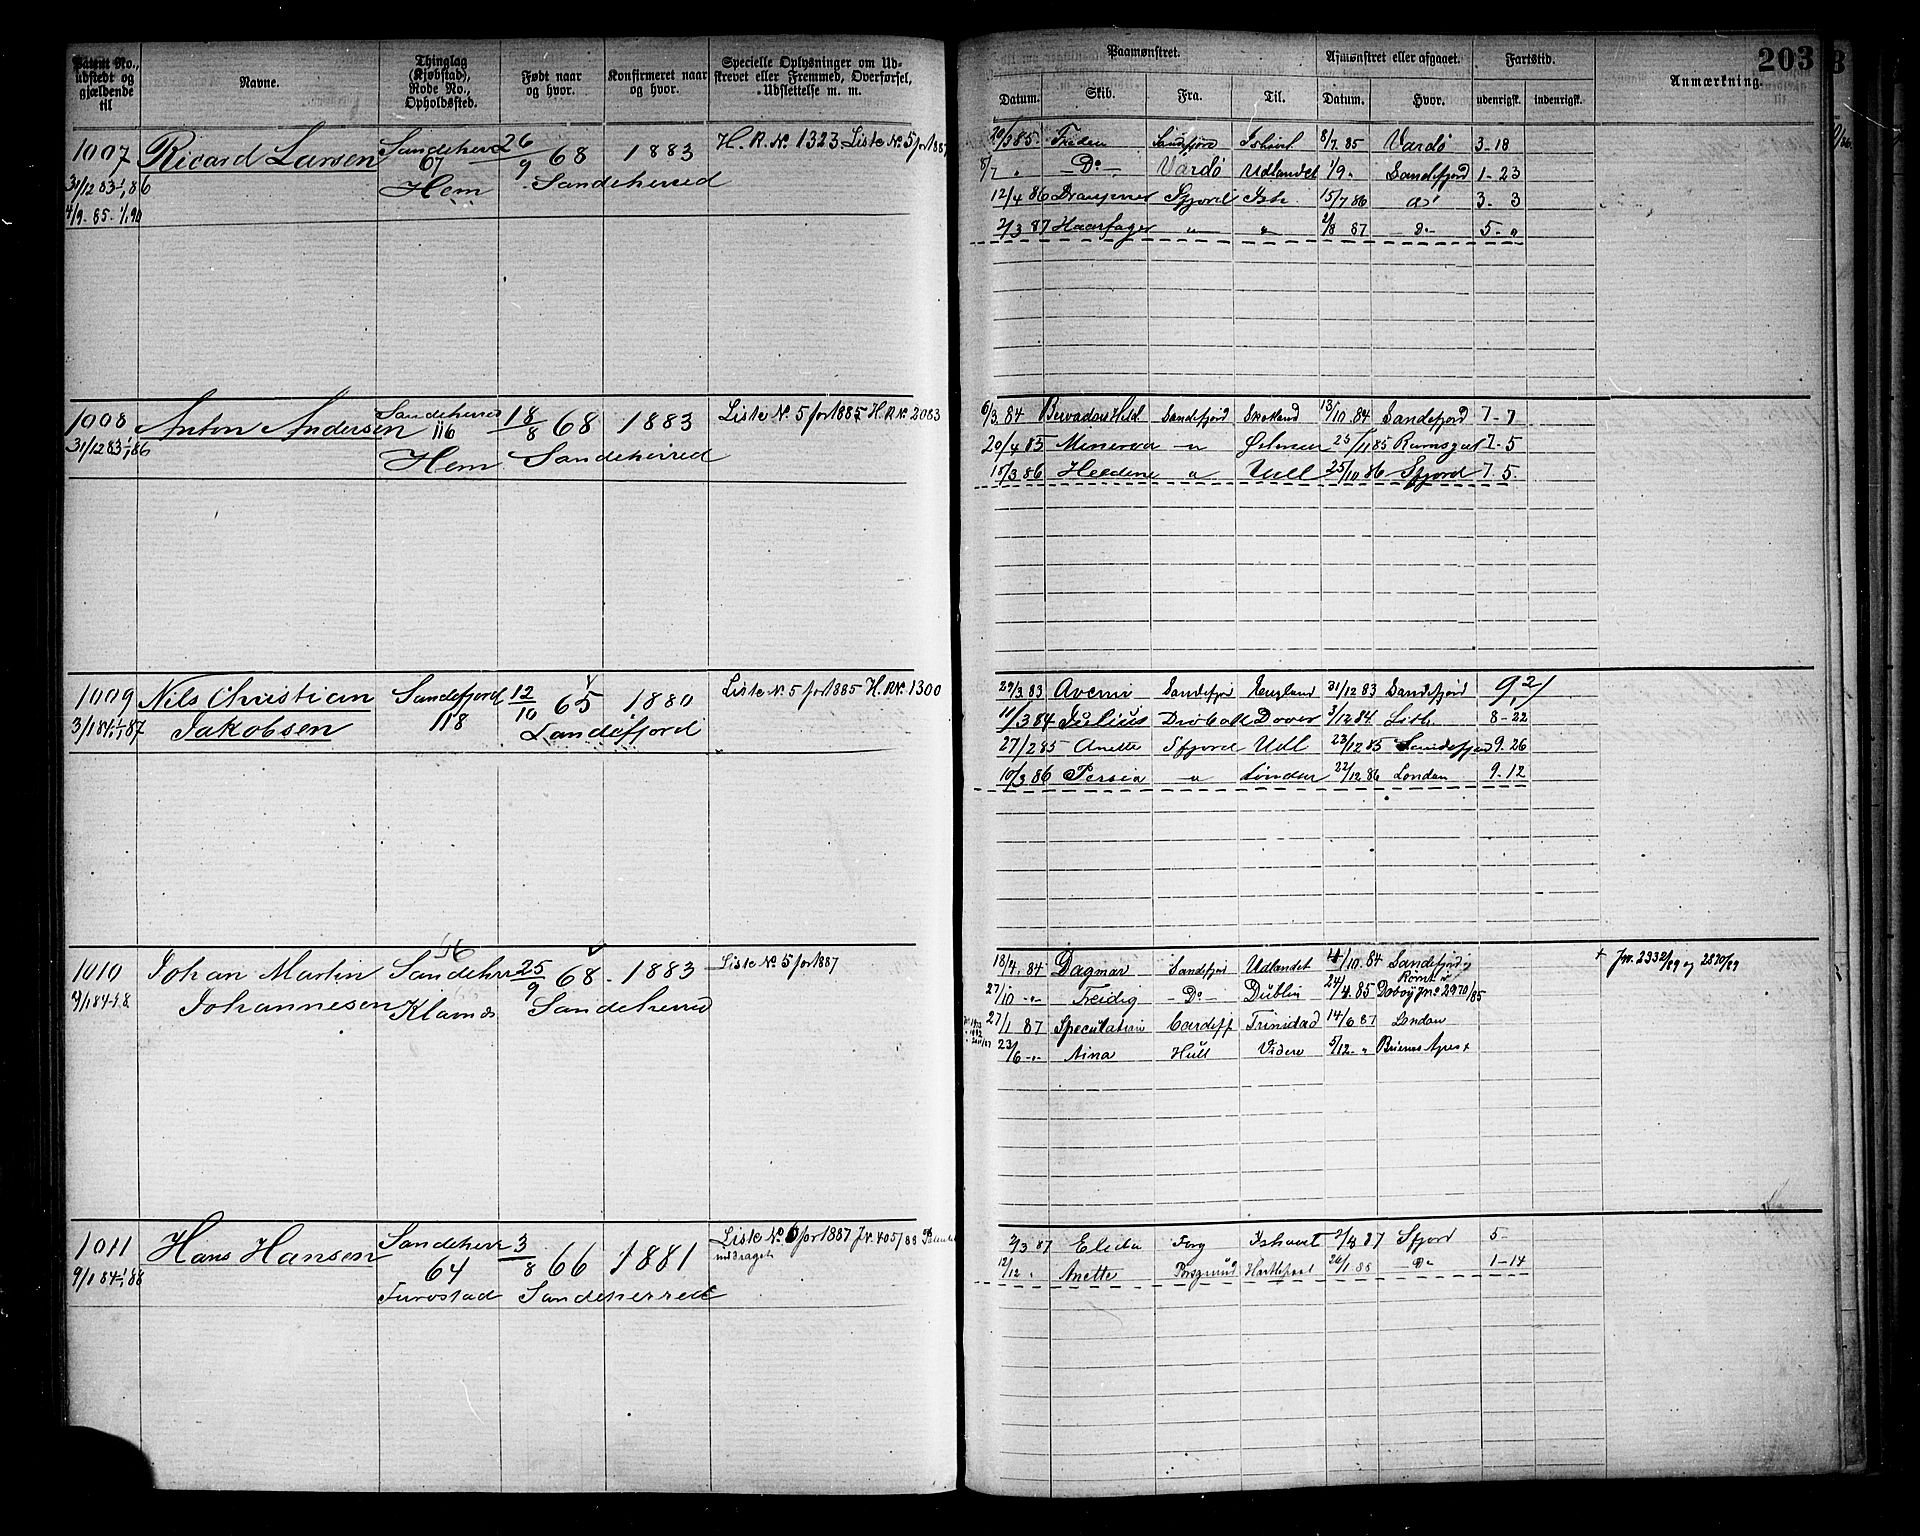 Patent No., udstedt og gjældende til
Navne.
Thinglag (Kjøbstad), Rode No., Opholdssted.
Født naar og hvor.
Konfirmeret naar og hvor.
Specielle Oplysninger om Udskrevet eller Fremmed, Overførsel, Udslettelse m. m.
Paamønstret.
Datum. Skib. Fra. Til.
Afmønstret eller afgaaet.
Datum. Hvor.
Fartstid.
udenrigsk. indenrigsk.
Anmærkning.
203
1007 Ricard Larsen Sandeherred 26/9 68 1883 H. R. No 1323 Liste No 5 for 1887
31/12 83-1/1 86 67 Sandeherred
4/9 85-1/1 90 Hem
20/3 85 Freden Sandefjord Ishavet 8/7 85 Vardø 3-18
8/7 " Do Vardø Udlandet 1/9 " Sandefjord 1-23
12/4 86 Draupner Sfjord Ish. 15/7 86 3- 3
2/3 87 Haarfager " " 2/8 87 5- "
1008 Anton Andersen Sandeherred 18/8 68 1883 Liste No 5 for 1885 H. R. No 2083
31/12 83-1/1 86 116 Sandeherred
Hem
6/3 84 Sandefjord Skotland 13/10 84 Sandefjord 7-7
20/4 85 Minerva " 25/11 85 Ramsgat 7-5
18/3 86 " 25/10 86 Sfjord 7-5
1009 Nils Christian Jakobsen Sandefjord 12/10 65 1880 Liste No 5 for 1885 H. R. No 1300
3/1 84-1/1 87 118 Sandefjord
29/3 83 Sandefjord England 31/12 83 Sandefjord 9,21
11/3 84 Julius Drøbak Dover 3/12 84 Lith 8-22
27/2 85 Anette Sfjord Udl 23/12 85 Sandefjord 9-26
10/3 86 Persia " London 22/12 86 London 9-12
1010 Johan Martin Johannesen Sandeherr 25/9 68 - 1883 Liste No 5 for 1887
Klavnes Sandeherred
18/4 84 Dagmar Sandefjord Udlandet 18/10 84 Sandefjord + Jno. 2332/89 og 2870/89
Rømt i
27/10 -"- Freidig - Do - Dublin 24/4 85 Doboy Jno 2970/85
27/1 87 Speculation Cardeff Trinidad 14/6 87 London
23/6 -"- Aina Hull Videre 5/12 - " Buenos Ayres +
1011 Hans Hansen Sandeherr 3/8 66 1881 Liste No 6 for 1887 Jno. 405/88
inddraget
9/1 84-1/1 88 64 Sandeherred
Furustad
2/3 87 Ishavet 2/8 87 Sfjord 5-
12/12 " Anette Porsgrund Hartlepool 26/1 88 Do 1-14